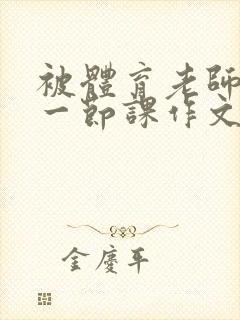 被體育老師
一節課作文
金慶平